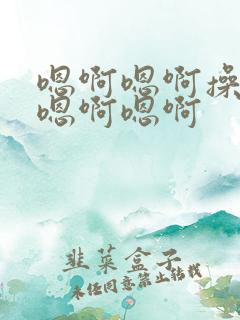 嗯啊嗯啊操
嗯啊嗯啊
韭菜盒子
未经同意禁止转载